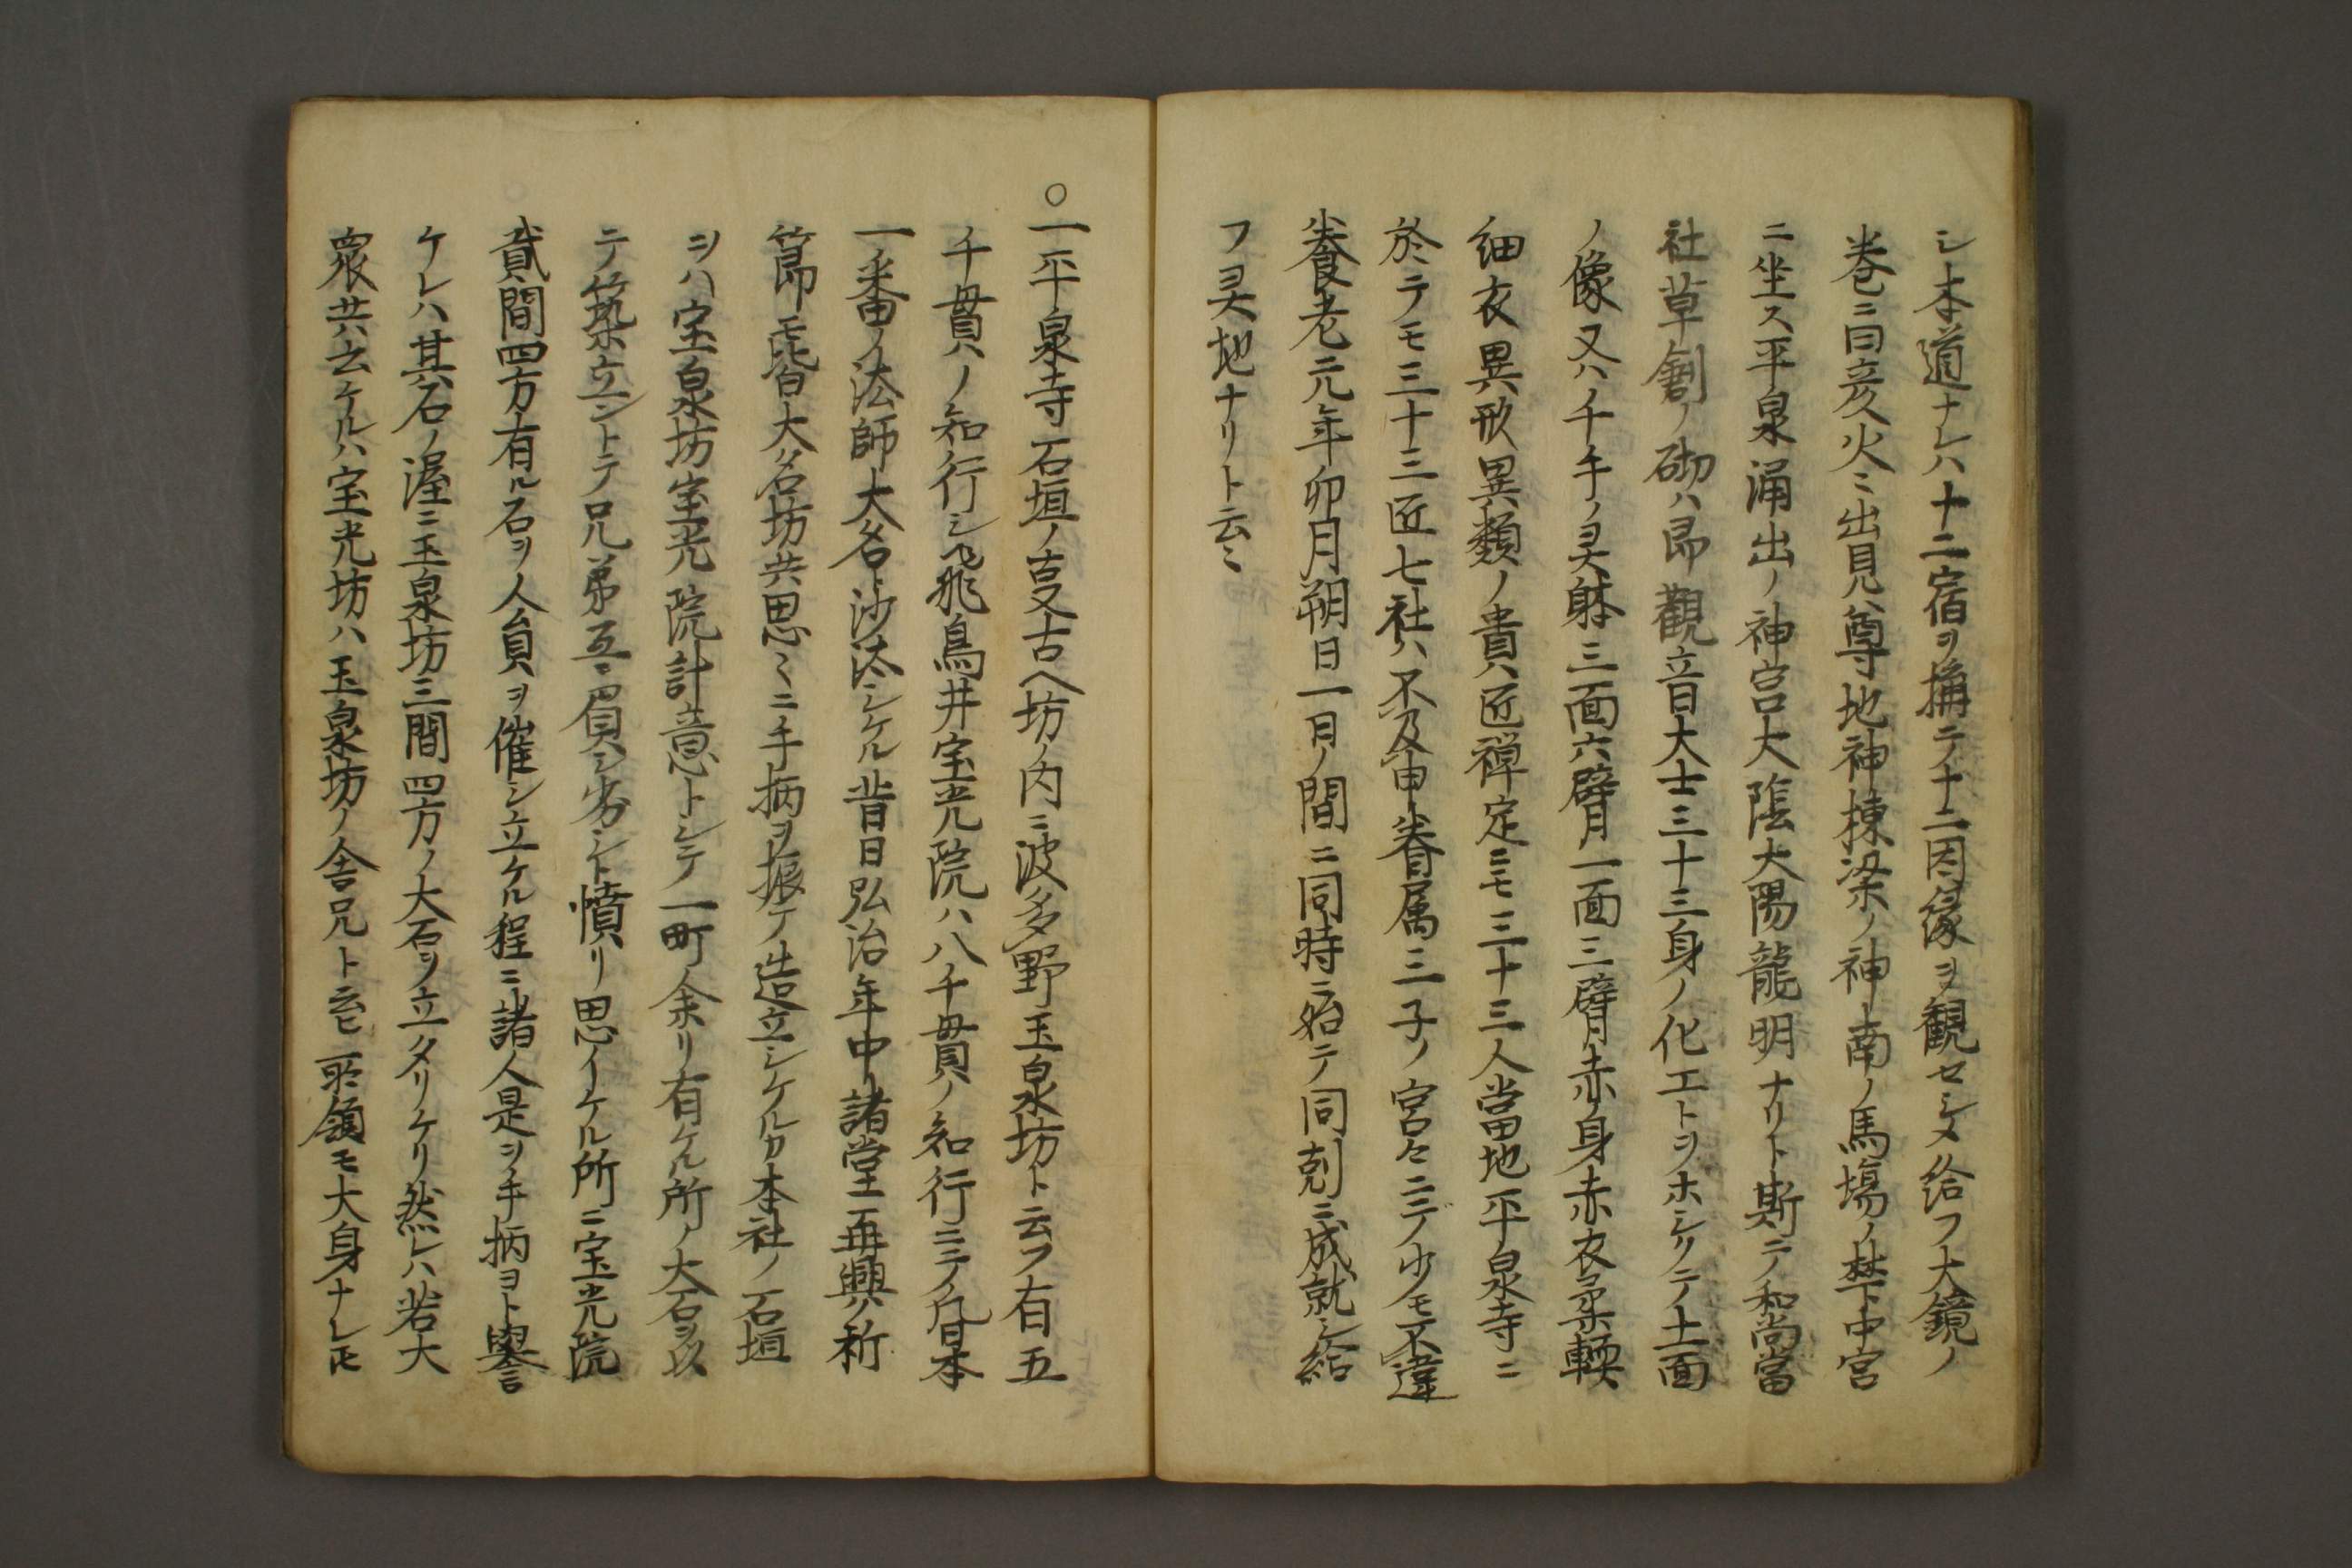 シ本道ナレハ十二宿ヲ搆テ十二因縁ヲ観セシメ給フ大鏡ノ
巻ニ曰彦火ミ出見ハ尊地神棟梁ノ神南ノ馬場ノ禁下中宮
ニ坐ス平泉涌出ノ神宮大陰大陽龍明ナリト斯テ和尚當
社草創ノ砌ハ即觀音大士三十三身ノ化エトヲホシクテ十一面
ノ像又ハ千手ノ灵躰三面六臂一面三臂赤身赤衣柔輭
細衣異形異類ノ貴ハ匠禅定ニモ三十三人當地平泉寺ニ
於テモ三十三匠七社ハ不及申眷属三子ノ宮々ニテ少モ不違
養老元年卯月朔日一日ノ間ニ同時ニ始テ同剋ニ成就シ給
フ灵地ナリト云ミ
○一平泉寺石垣ノ叓古ヘ坊ノ内ニ波多野玉泉坊ト云フ有五
千貫ノ知行シ飛鳥井宝光院ハ八千貫ノ知行ニテ凡日本
一番ノ法師大名ト沙汰シケル昔日弘治年中諸堂再興ノ祈
節モ皆大名坊共思ミニ手柄ヲ振テ造立シケルカ本社ノ石垣
ヲハ宝泉坊宝光院計意トシテ一町余リ有ケル所ノ大石ヲ以
テ築立ントテ兄弟互ニ負シ劣シト憤リ思イケル所ニ宝光院
貳間四方有ル石ヲ人員ヲ催シ立ケル程ニ諸人是ヲ手柄ヨト譽
ケレハ其石ノ渥ニ玉泉坊三間四方ノ大石ヲ立タリケリ然レハ若大
衆共云ケルハ宝光坊ハ玉泉坊ノ舎兄ト云ヒ所領モ大身ナレ𪜈